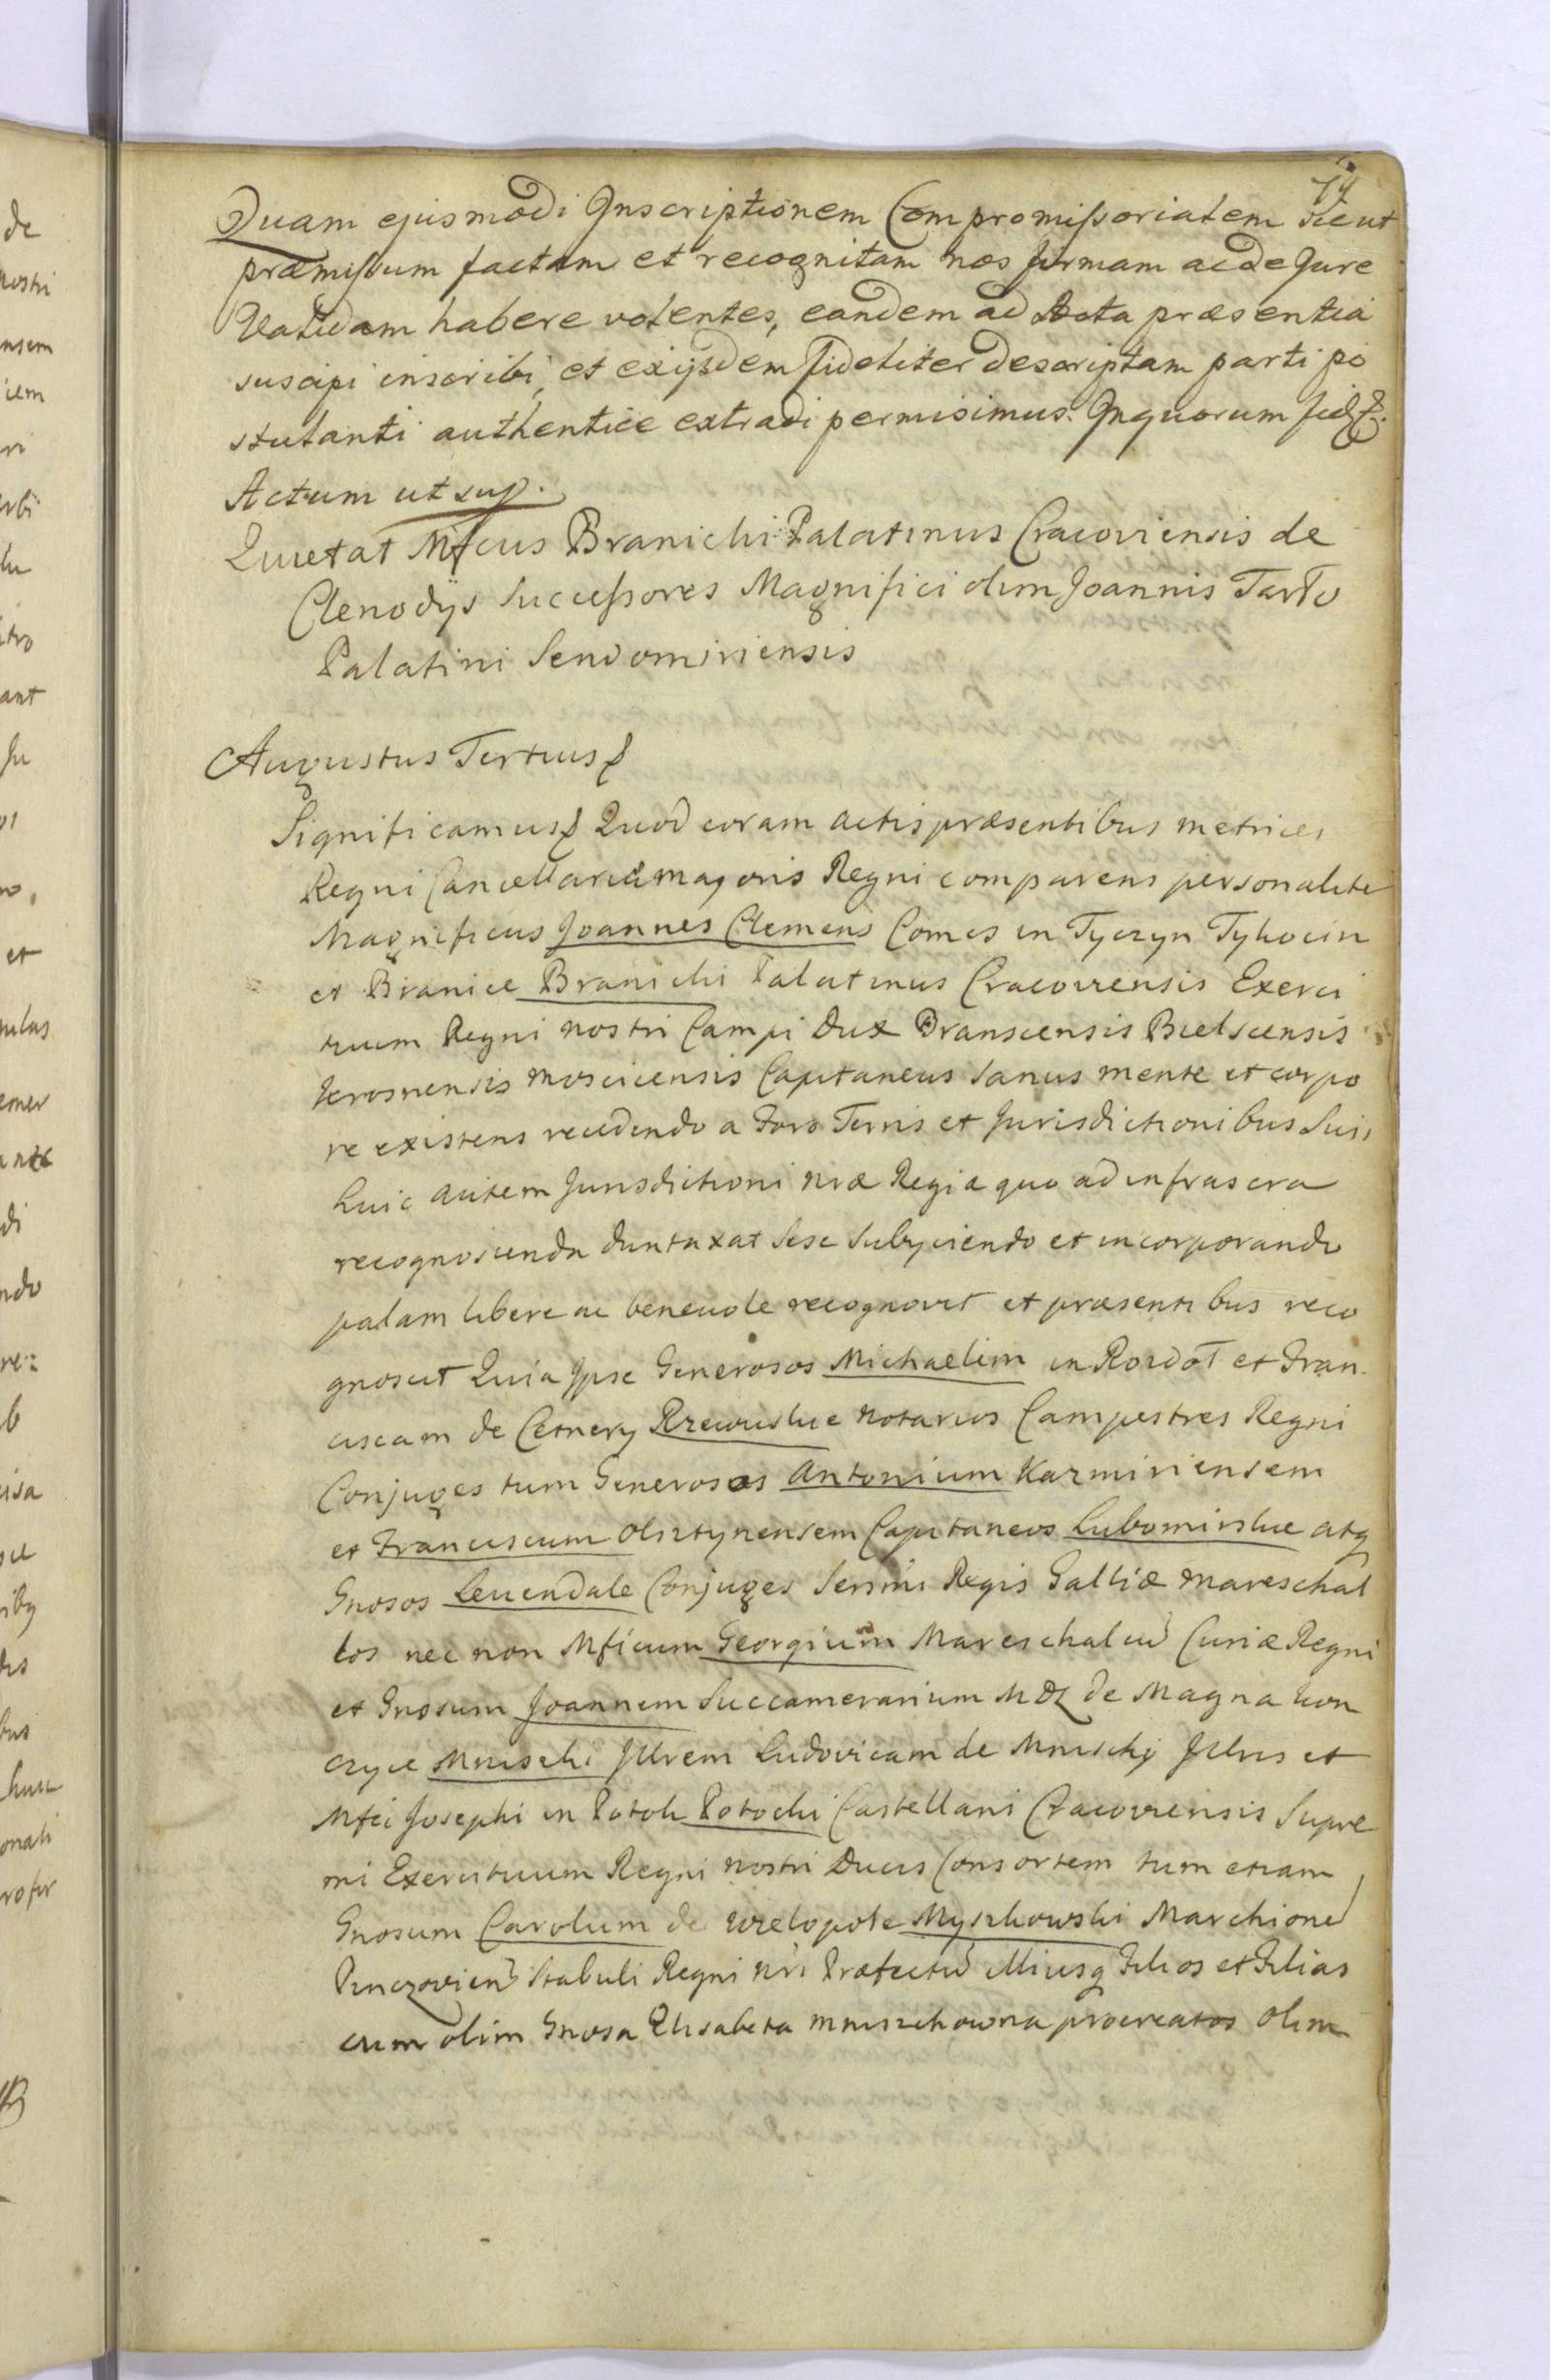 74
Quam ejusmodi Inscriptionem Compromissorialem sicut
præmissum factam et recognitam nos firmam ac de Jure
Validam habere volentes, eandem ad Acta præsentia
suscipi inscribi, et exijsdem fideliter descriptam parti po
stulanti authentice extradi permisimus. In quorum fid
Actum ut sup.
Quietat Mfcus Branicki Palatinus Cracoviensis de
Clenodijs Successores Magnifici olim Joannis Tarło
Palatini Sendomiriensis
Augustus Tertius
Significamus Quod coram actis præsentibus metrices
Regni Cancellariæ majoris Regni comparens personalite
Magnificus Joannes Clemens Comes in Tyczyn Tykocin
et Branice Branicki Palatinus Cracoviensis Exerci
tuum Regni nostri Campi Dux Branscensis Bielscensis
Krosnensis moscicensis Capitaneus Sanus mente et corpo
re existens recedendo a Foro Terris et Jurisdictionibus Suis
huic autem Jurisdictioni nræ Regiæ quo ad infrascra
recognoscenda duntaxat sese subyciendo et incorporando
palam libere ac benevole recognovit et præsentibus reco
gnoscit Quia Ipse Generosos Michaelem in Rozdoł et Fran
ciscam de Cetnery Rzewuskie notarios Campestres Regni
Conjuges tum Generosos Antonium Kazmiriensem
et Franciscum Olsztynensem Capitaneos Lubomirskie atq
Gnosos Levendale Conjuges Sermi Regis Galliæ mareschal
los nec non Mficum Georgium Mareschalcu Curiæ Regni
et Gnosum Joannem Succamerarium MDL de Magna kon
czyce Mniszchi Illrem Ludovicam de Mniszchy Illris et
Mfci Josephi in Potok Potocki Castellani Cracoviensis Supre
mi Exercituum Regni nostri Ducis Consortem tum etiam
Gnosum Carolum de Wielopole Myszkowski Marchione
Pinczovien Stabuli Regni nri Præfectu illiusq Filios et Filias
cum olim Gnosa Elisabeta mniszchowna procreatos olim